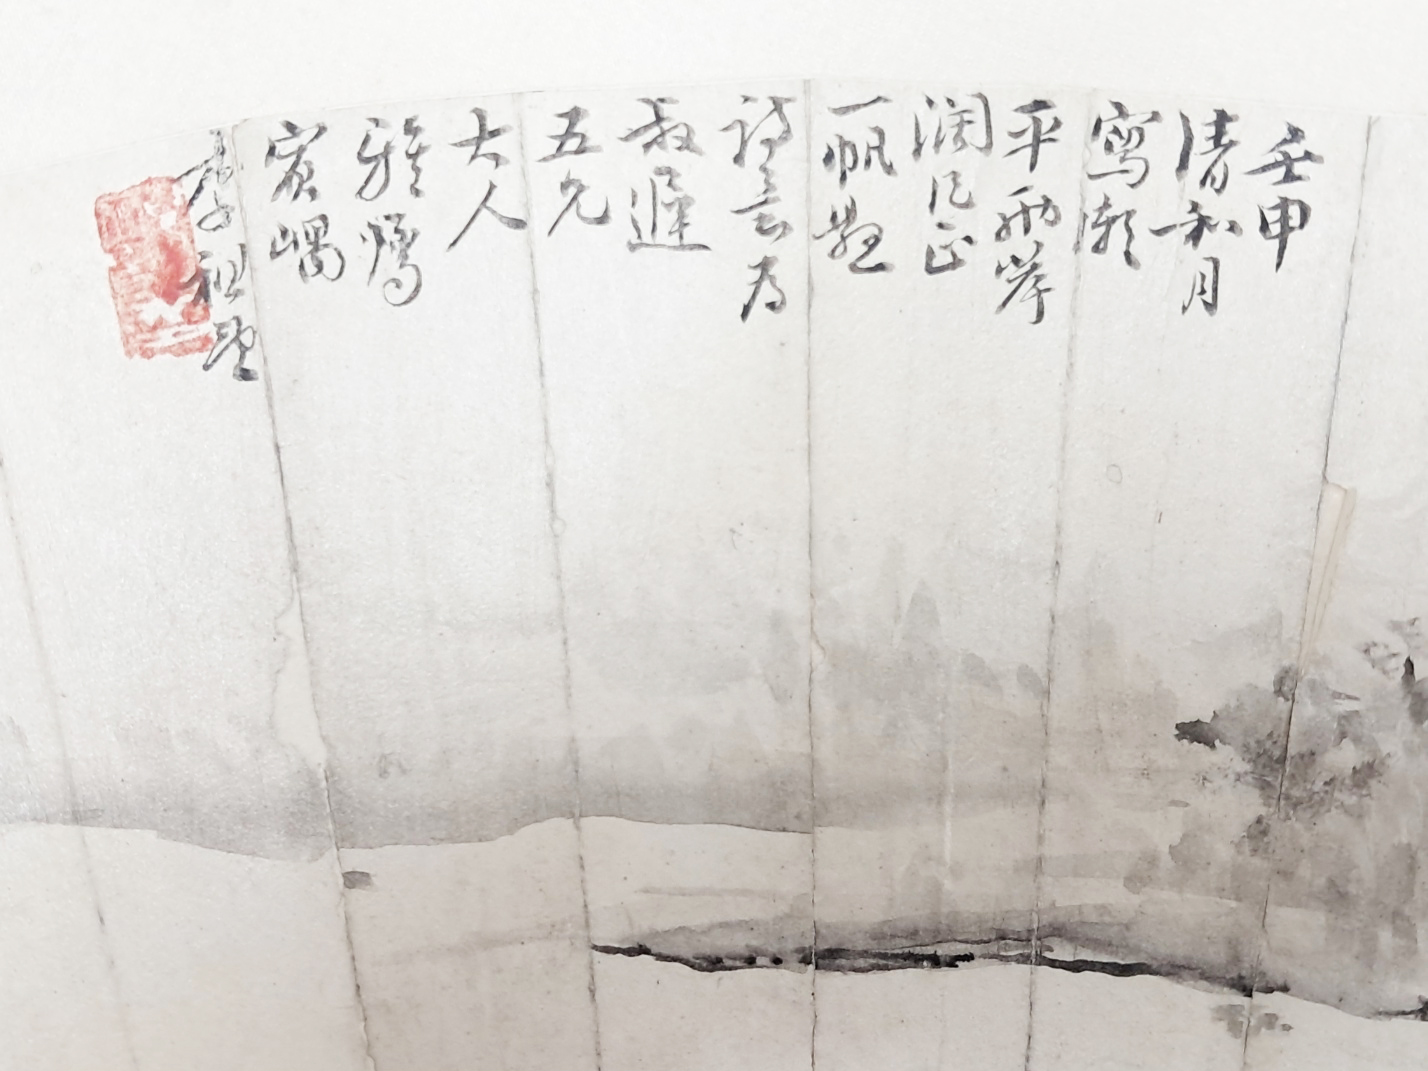 壬申
清和月
寫潮
平兩岸
濶風正
一帆懸
詩意為
叔遲
五兄
大人
雅屬
賓嵎
李祖